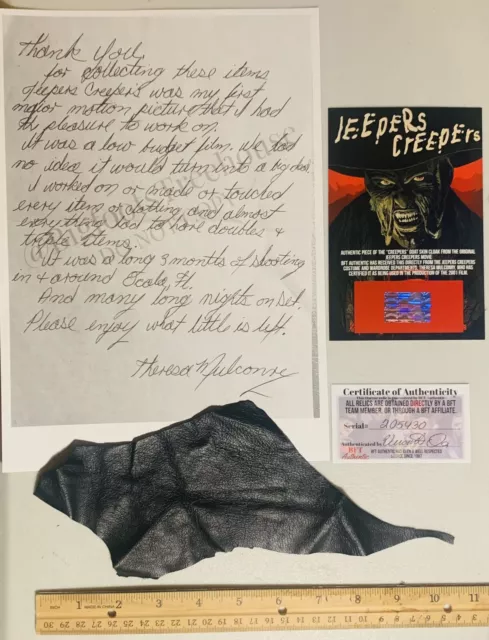 Thank You,
for collecting these items
Jeepers Creepers was my first
major motion picture that I had
the pleasure to work on.
It was a low budget film. We had
no idea it would turn into a big deal
I worked on or made or touched
every item of clothing and almost
everything had to have doubles &
triple items.
It was a long 3 months of shooting
in & around Ocala, FL.
And many long nights on set.
Please enjoy what little is left.
Theresa Mulconry
JEEPERS
CREEPERS
AUTHENTIC PIECE OF THE "CREEPERS" GOAT SKIN CLOAK FROM THE ORIGINAL
JEEPERS CREEPERS MOVIE
BFT AUTHENTIC HAS RECEIVED THIS DIRECTLY FROM THE JEEPERS CREEPERS
COSTUME AND WARDROBE DEPARTMENTS, THERESA MULCONRY, WHO HAS
CERTIFIED IT AS BEING USED IN THE PRODUCTION OF THE 2001 FILM.
Certificate of Authenticity
ALL RELICS ARE OBTAINED DIRECTLY BY A BFT
TEAM MEMBER, OR THROUGH A BFT AFFILIATE.
Serial# 205430
Authenticated by
BFT
INCH 1 2 3 4 5 6 7 8 9 10 11
30 29 28 27 26 25 24 23 22 21 20 19 18 17 16 15 14 13 12 11 10 9 8 7 6 5 4 3 2 1